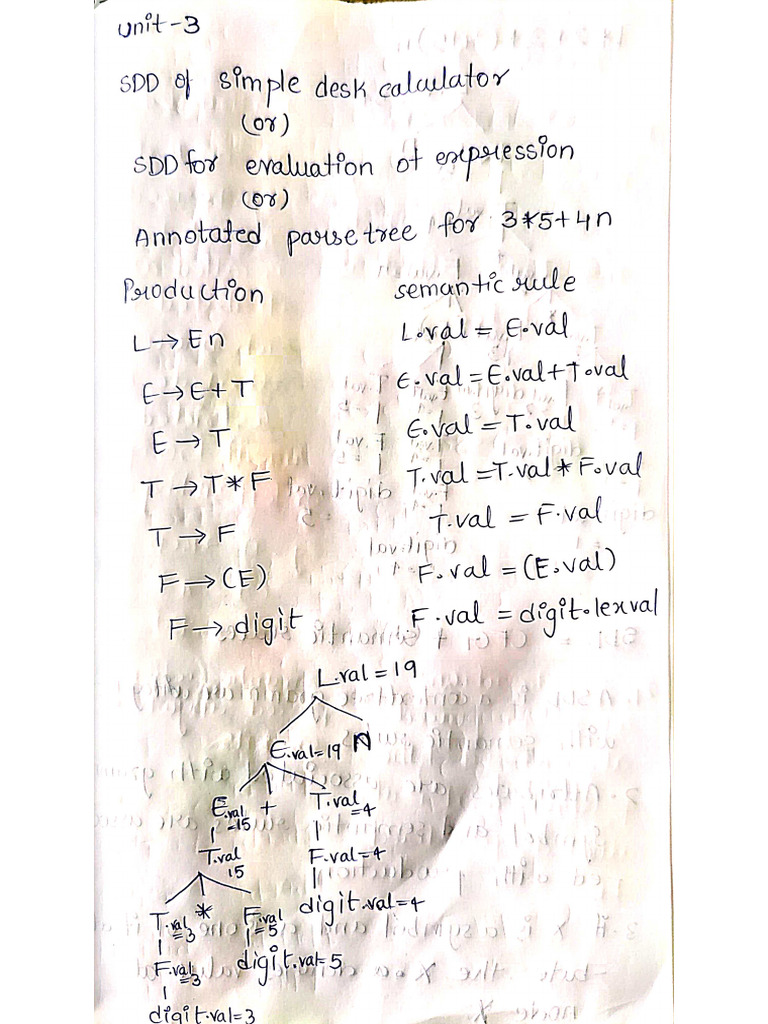 Unit-3
SDD of simple desk calculator
(or)
SDD for evaluation of expression
(or)
Annotated parse tree for 3*5+4n
Production semantic rule
L→En L.val = E.val
E→E+T E.val=E.val+T.val
E→T E.val = T.val
T→T*F T.val=T.val*F.val
T→F T.val = F.val
F→(E) F.val =(E.val)
F→digit F.val = digit.lexval
L.val=19
E.val=19 N
E.val=15 + T.val=4
T.val 15 F.val=4
T.val=3 * F.val=5 digit.val=4
F.val=3 digit.val=5
digit.val=3